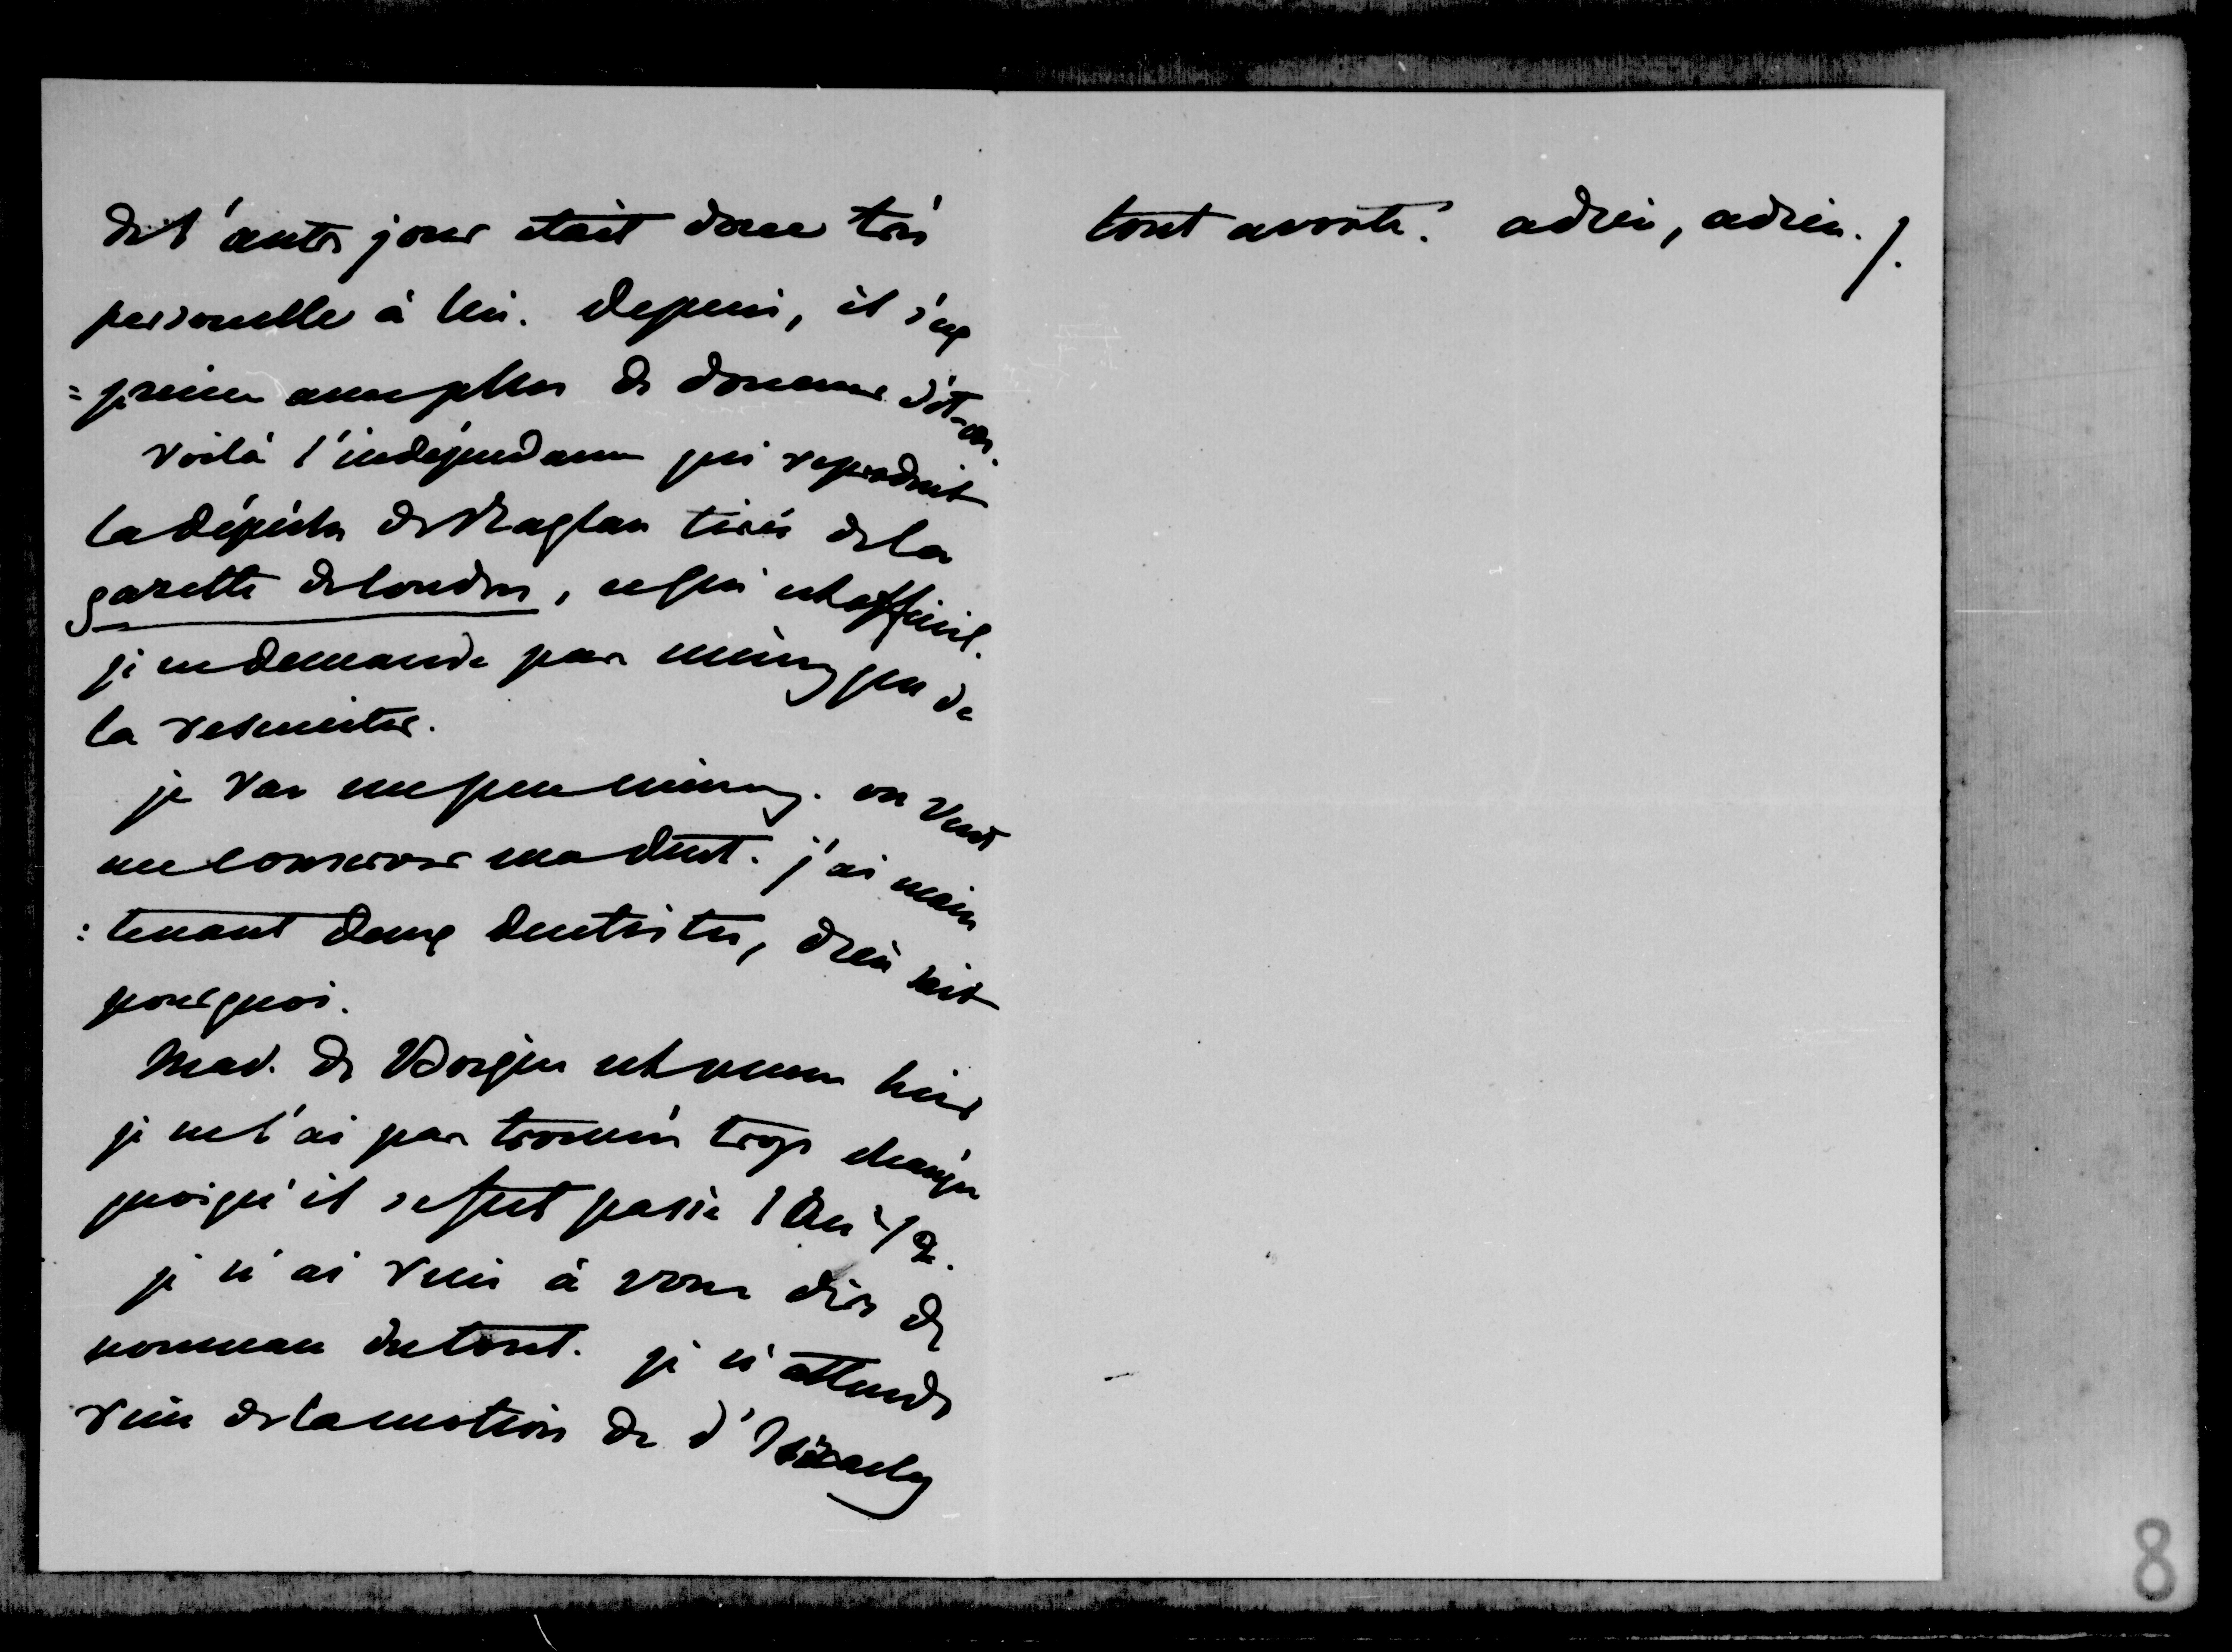 de l'autre jour était donc très
personelle à lui. depuis, il s'ex
=prime avec plus de    dit-on.
voilà l'indépendance qui reproduit
la dépêche de Raglan tirée de la
gazette de londres, ce qui est officiel.
je ne demande pas mieux que de
la
je vas un peu mieux. on veut
me conserver ma dent. j'ai main
=tenant deux dentistes, dieu sait
pourquoi.
Mad. de Boigne est venue hier
je ne l'ai pas trouvée trop changée
quoiqu'il se fut passé 1 an 1/2.
je n'ai rien à vous dire de
nouveau du tout. je n'attends
rien de la motion de d'Israely
tout avorte. adieu, adieu.
8